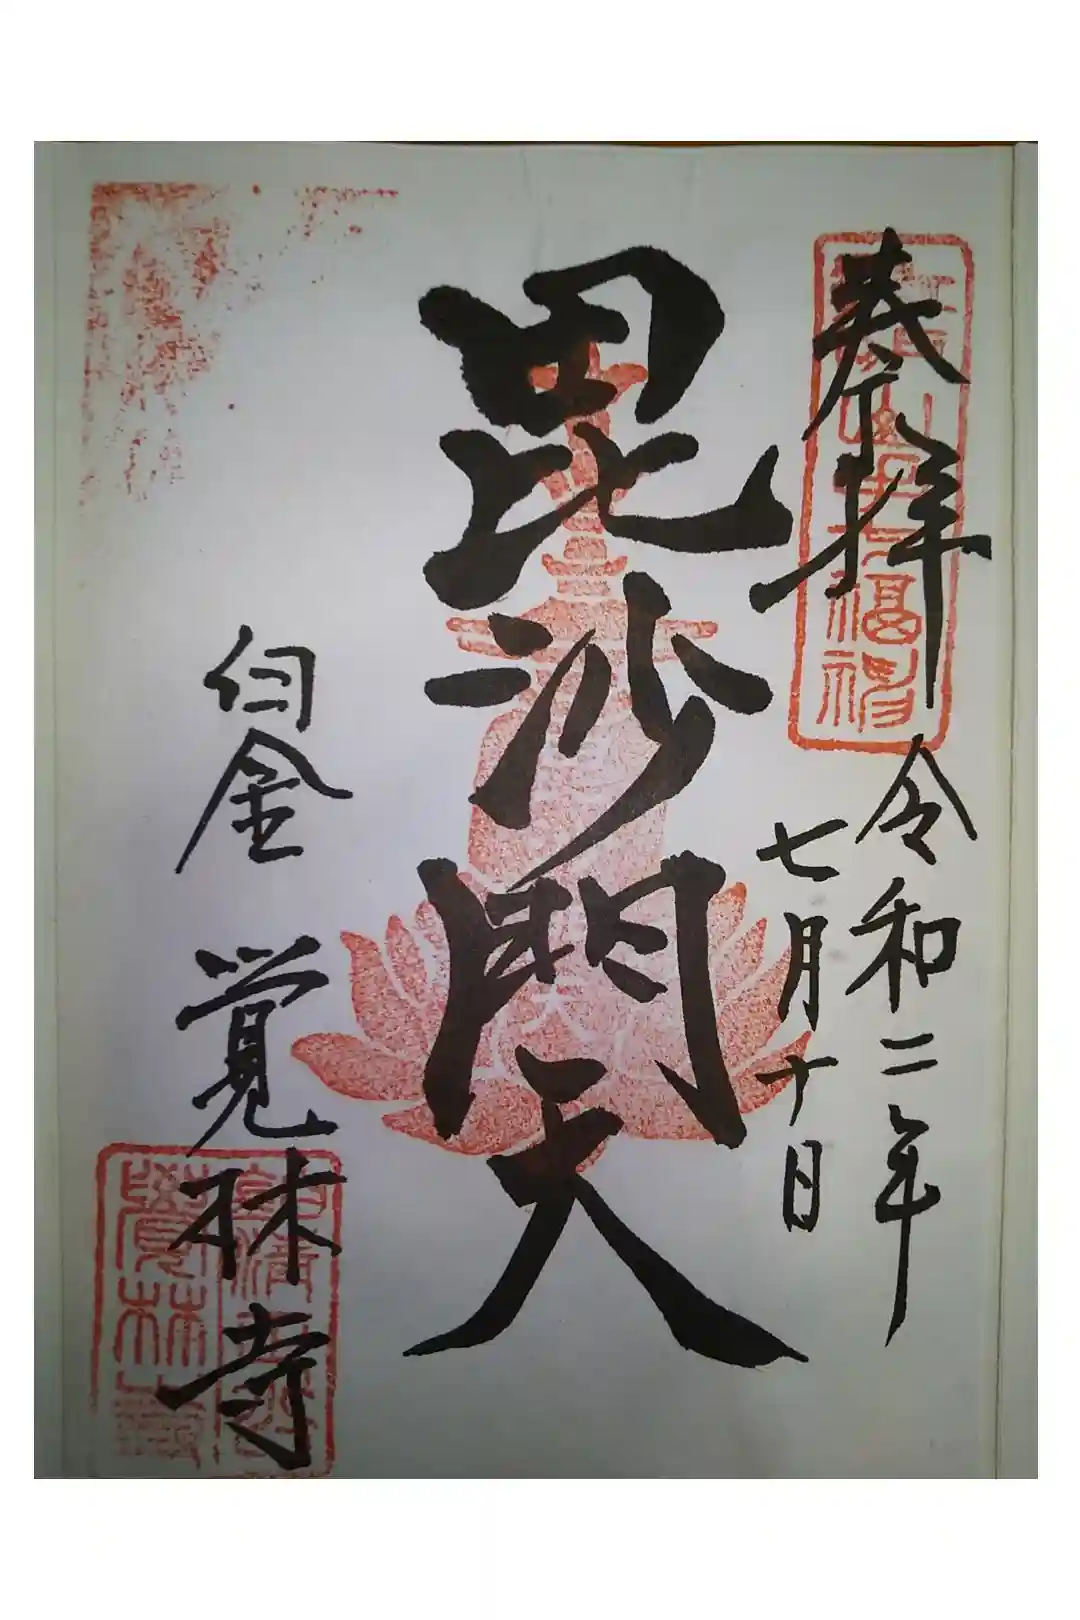 奉拝
令和二年
七月十日
毘沙門天
白金 覚林寺
覺林